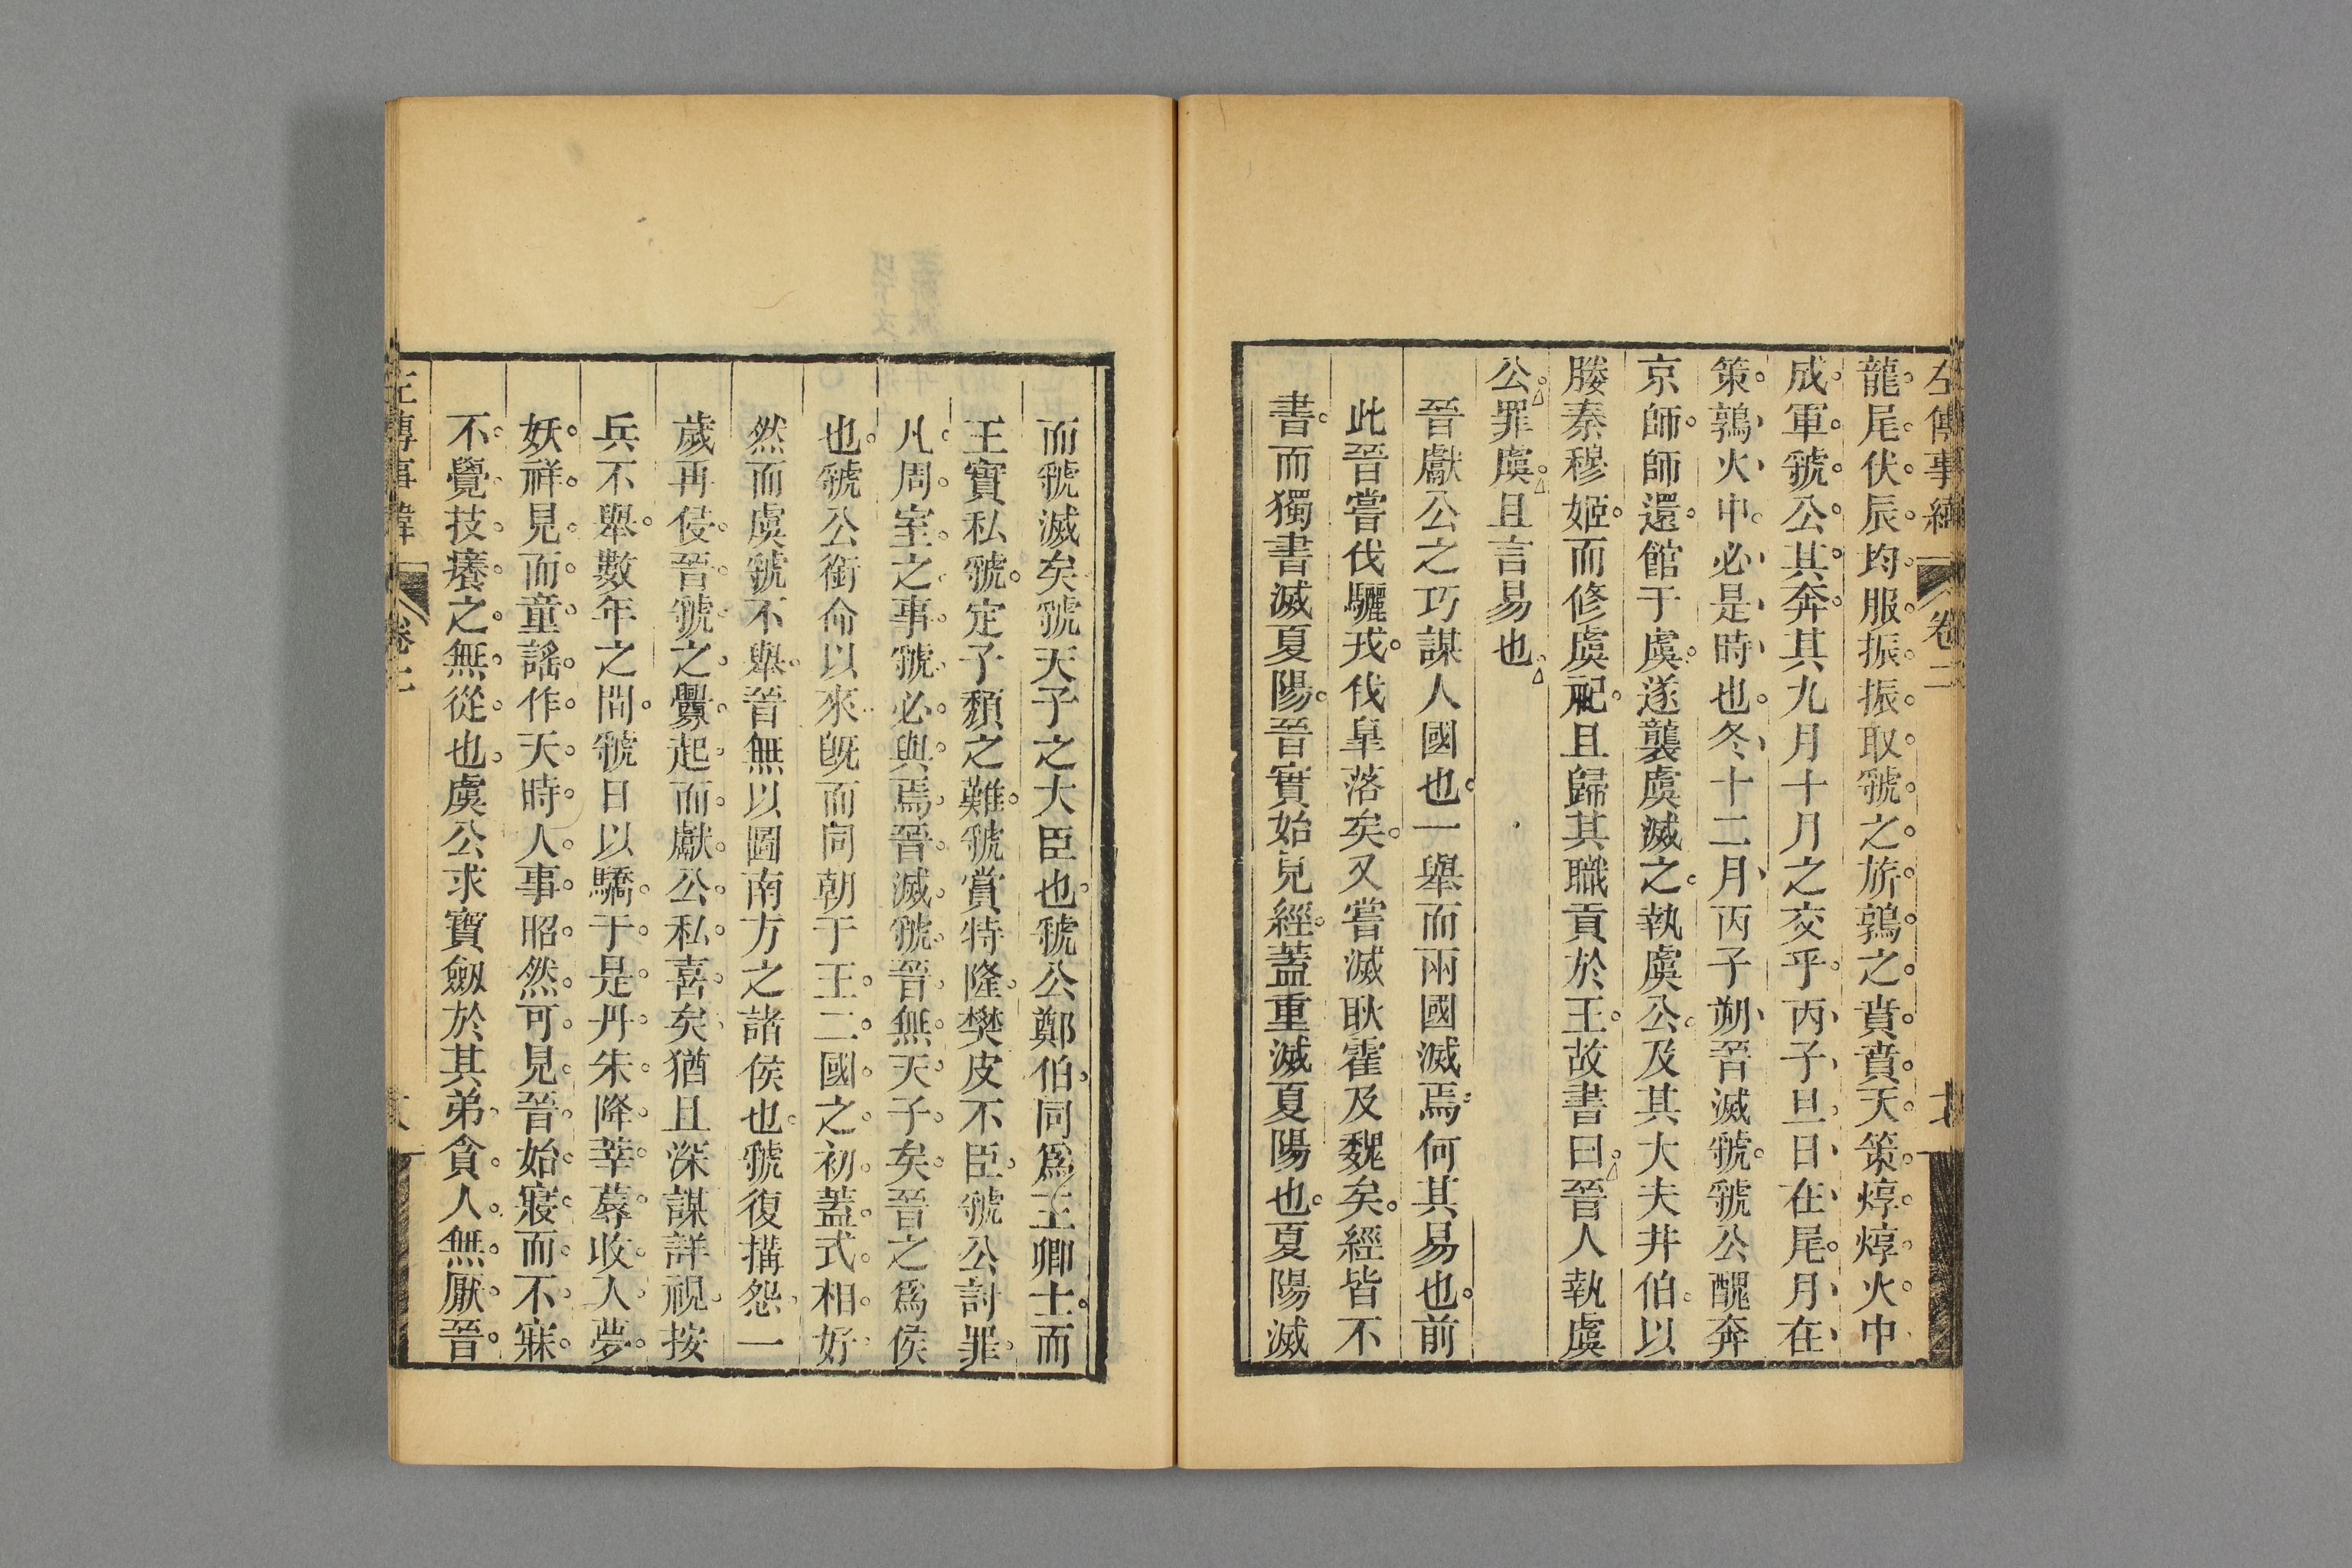 左傳事緯
卷二
龍尾伏辰均服振振取虢之旂鶉之賁賁天策焞焞火中
成軍虢公其奔其九月十月之交乎丙子旦日在尾月在
策鶉火中必是時也冬十二月丙子朔晉滅虢虢公醜奔
京師師還館于虞遂襲虞滅之執虞公及其大夫井伯以
媵秦穆姬而修虞祀且歸其職貢於王故書曰晉人執虞
公罪虞且言易也
晉獻公之巧謀人國也一舉而兩國滅焉何其易也前
此晉嘗伐驪戎伐皐落矣又嘗滅耿霍及魏矣經皆不
書而獨書滅夏陽晉實始見經蓋重滅夏陽也夏陽滅
而虢滅矣虢天子之大臣也虢公鄭伯同爲王卿士而
王實私虢定子頽之難虢賞特隆樊皮不臣虢公討罪
凡周室之事虢必與焉晉滅虢晉無天子矣晉之爲侯
也虢公銜命以來旣而同朝于王二國之初蓋式相好
然而虞虢不舉晉無以圖南方之諸侯也虢復搆怨一
歲再侵晉虢之釁起而獻公私喜矣猶且深謀詳視按
兵不舉數年之間虢日以驕于是丹朱降莘蓐收入夢
妖祥見而童謠作天時人事昭然可見晉始寢而不寐
不覺技癢之無從也虞公求寶劔於其弟貪人無厭晉
左傳事緯
卷二